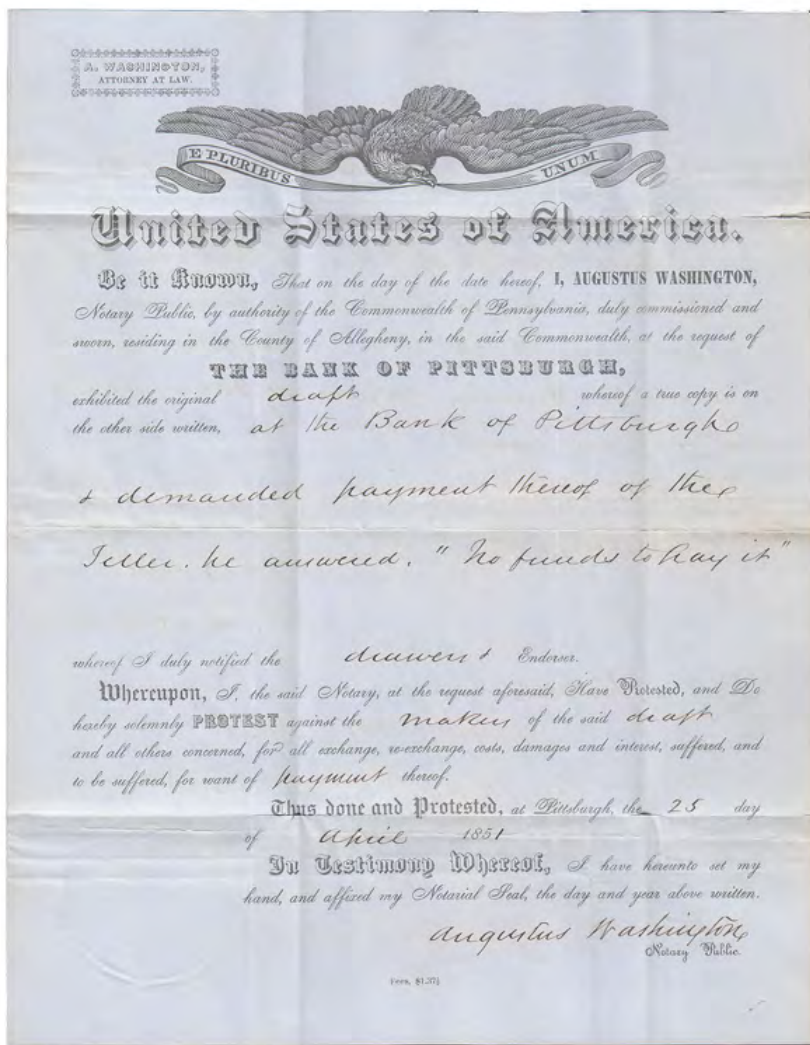 A. WASHINGTON,
ATTORNEY AT LAW.
E PLURIBUS UNUM
United States of America.
Be it Known, That on the day of the date hereof, I, AUGUSTUS WASHINGTON,
Notary Public, by authority of the Commonwealth of Pennsylvania, duly commissioned and
sworn, residing in the County of Allegheny, in the said Commonwealth, at the request of
THE BANK OF PITTSBURGH,
exhibited the original draft whereof a true copy is on
the other side written, at the Bank of Pittsburgh
& demanded payment thereof of the
Teller. he answered. "No funds to pay it"
whereof I duly notified the drawers & Endorser.
Whereupon, I, the said Notary, at the request aforesaid, Have Protested, and Do
hereby solemnly PROTEST against the makers of the said draft
and all others concerned, for all exchange, re-exchange, costs, damages and interest, suffered, and
to be suffered, for want of payment thereof.
Thus done and Protested, at Pittsburgh, the 25 day
of April 1851
In Testimony Whereof, I have hereunto set my
hand, and affixed my Notarial Seal, the day and year above written.
Augustus Washington
Notary Public.
Fees, $1.37½